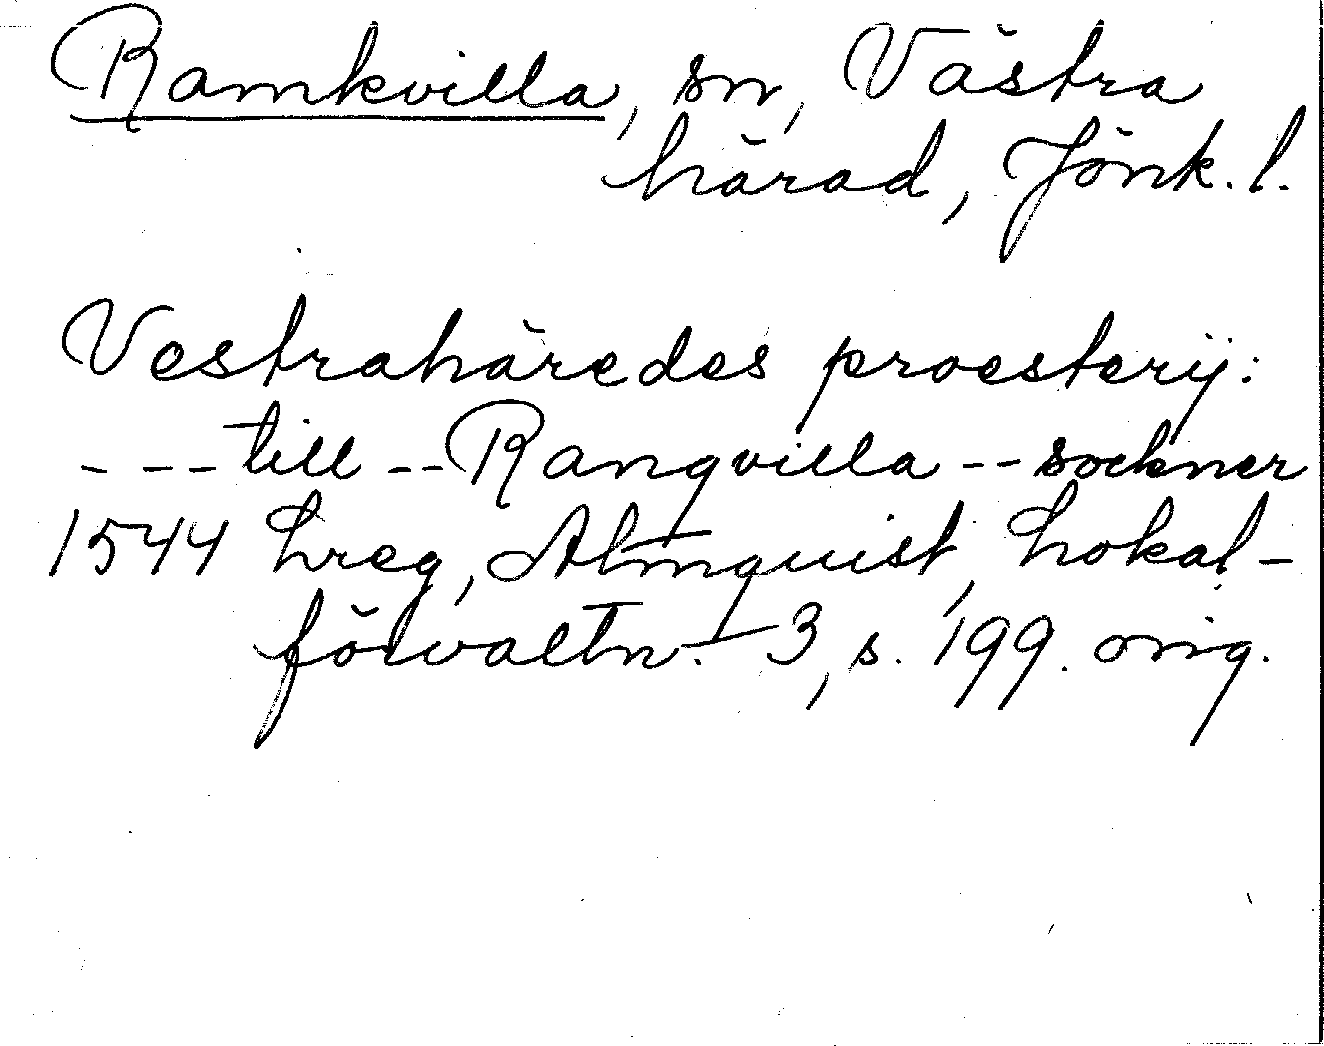 Ramkvilla, sn, Västra
härad, Jönk. l.
Vestrahäredes proesterij:
- - - till - - Rangvilla - - sockner
1544 Lreg, Almquist, Lokal-
förvaltn. 3, s. 199. orig.